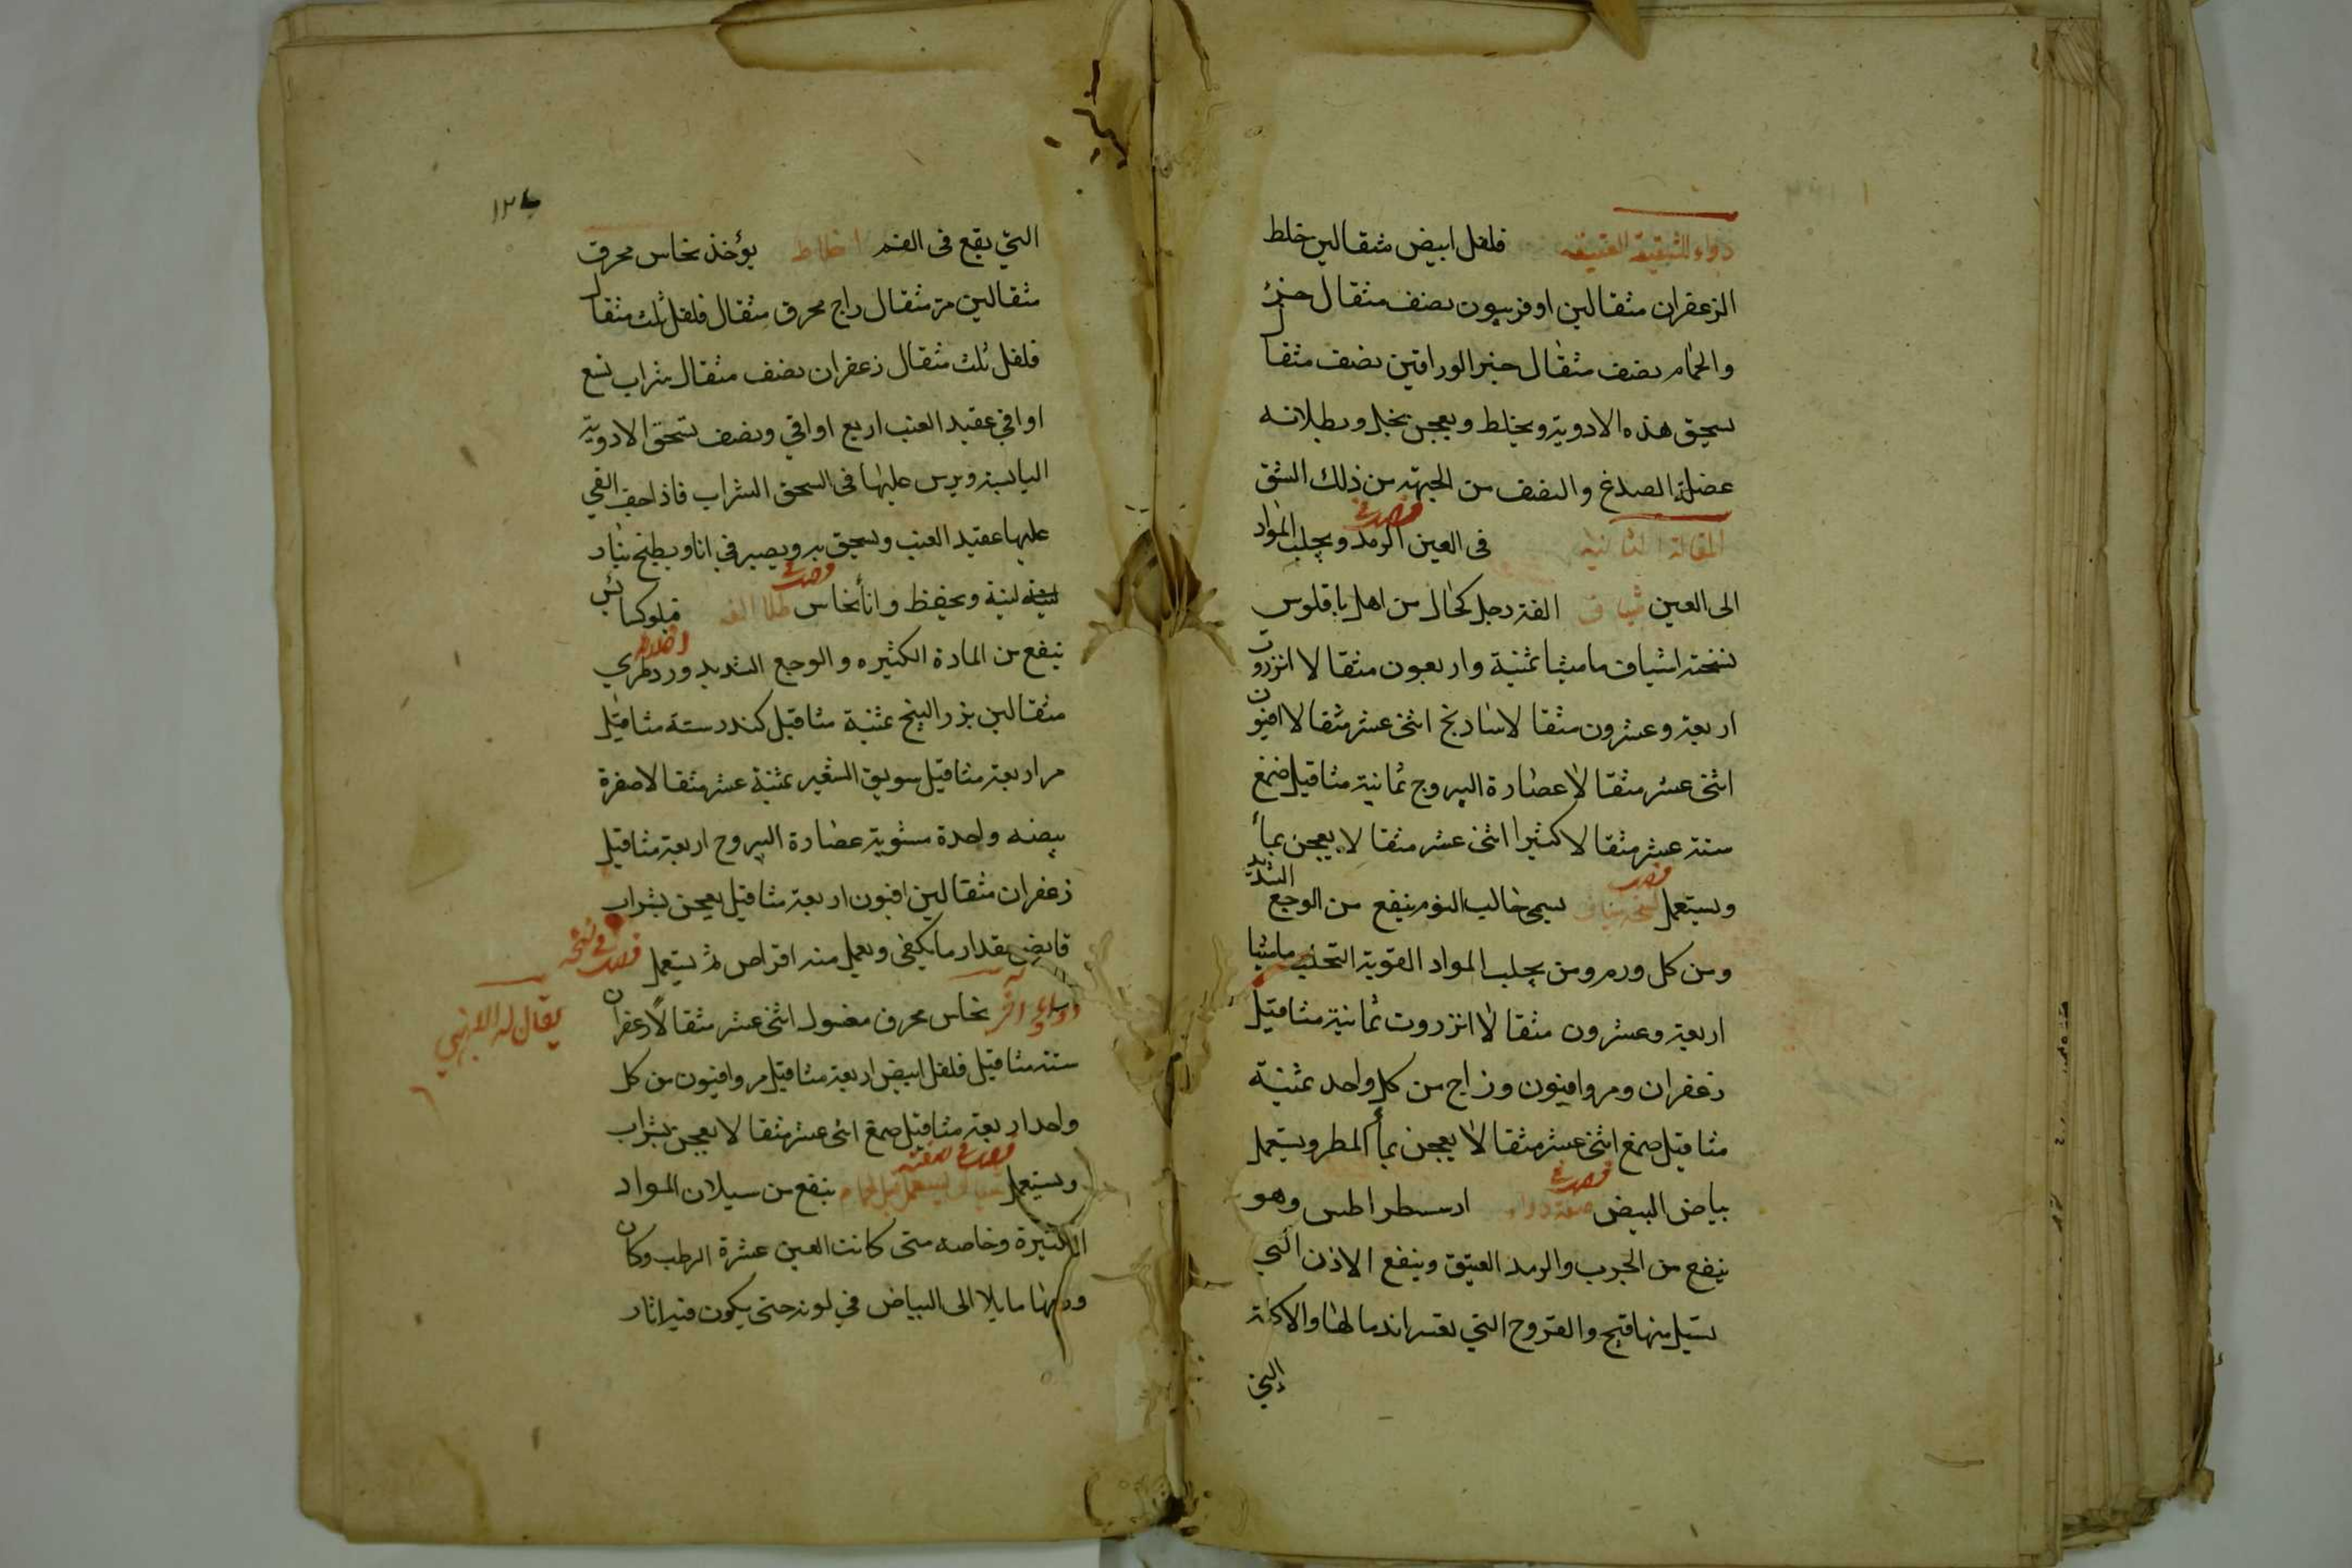 دواء للشقيقة العتيقه فلفل ابيض مثقالين خلط
الزعفران مثقالين اوفربيون نصف مثقال خرء
والحمام نصف مثقال حبر الوراقين نصف مثقال
يسحق هذه الادوية ويخلط ويعجن بخل ويطلا به
عضلة الصدغ والنصف من الجبهة من ذلك الشق
المقالة الثانية فى العين الرمد ويجلب المواد
الى العين شياف الفه رجل كحال من اهل باقلوس
نسخته اشياف ماميثا ثمنية واربعون مثقالا انزروت
اربعة وعشرون مثقالا شادنج اثنى عشر مثقالا افيون
اثنى عشر مثقالا عصارة اليبروج ثمانية مثاقيل صمغ
ستة عشر مثقالا كثيرا اثنى عشر مثقالا يعجن بمأ
ويستعمل نسخة شياف يسمى خالب النوم ينفع من الوجع الشديد
ومن كل ورم ومن يجلب المواد القوية التحلب ماميثا
اربعة وعشرون مثقالا انزروت ثمانية مثاقيل
زعفران ومر وافيون وزاج من كل واحد ثمنية
مثاقيل صمغ اثنى عشر مثقالا يعجن بمأ المطر ويستعمل
بياض البيض صفة دواء ارسسطراطس وهو
ينفع من الجرب والرمد العتيق وينفع الاذن التي
يسيل منها قيح والقروح التي يعسر اندمالها والاكلة
التي
١٢٤
التي يقع فى الفم اخلاط يؤخذ نحاس محرق
مثقالين مر مثقال زاج محرق مثقال فلفل ثلث مثقال
فلفل ثلث مثقال زعفران نصف مثقال شراب تسع
اواقي عقيد العنب اربع اواقي ونصف تسحق الادوية
اليابسة ويرس عليها فى السحق الشراب فاذا جف القي
عليها عقيد العنب ويسحق به ويصير في انا ويطبخ بنار
لينة ويحفظ في انأ نحاس طلا الفه فيلوكسانس
ينفع من المادة الكثيره والوجع الشديد اخلاطه ورد طري
مثقالين بزر البنج ثمنية مثاقيل كندر ستة مثاقيل
مر اربعة مثاقيل سويق الشعير ثمنية عشر مثقالا صفرة
بيضه واحدة مشوية عصارة اليبروح اربعة مثاقيل
زعفران مثقالين افيون اربعة مثاقيل يعجن بشراب
قابض بمقدار ما يكفي ويعمل منه اقراص ثم يستعمل
دواء آخر نحاس محرق مغسول اثنى عشر مثقالاً زعفران
يقال له
ستة مثاقيل فلفل ابيض اربعة مثاقيل مر وافيون من كل
واحد اربعة مثاقيل صمغ اثنى عشر مثقالا يعجن بشراب
ويستعمل يستعمل قبل الحمام ينفع من سيلان المواد
الكثيرة وخاصه متى كانت العين عشرة الرطب وكان
ورمها مايلا الى البياض في لونه حتى يكون فيه اثار